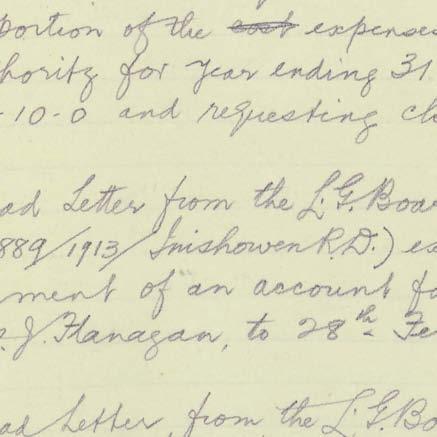 portion of the cost expenses
hority for year ending 31
-10-0 and requesting
ad Letter from the L.G. Boar
889/1913/Inishowen R.D.) ex
ment of an account fo
. J. Flanagan, to 28th Fe
ad Letter from the L.G. Bo